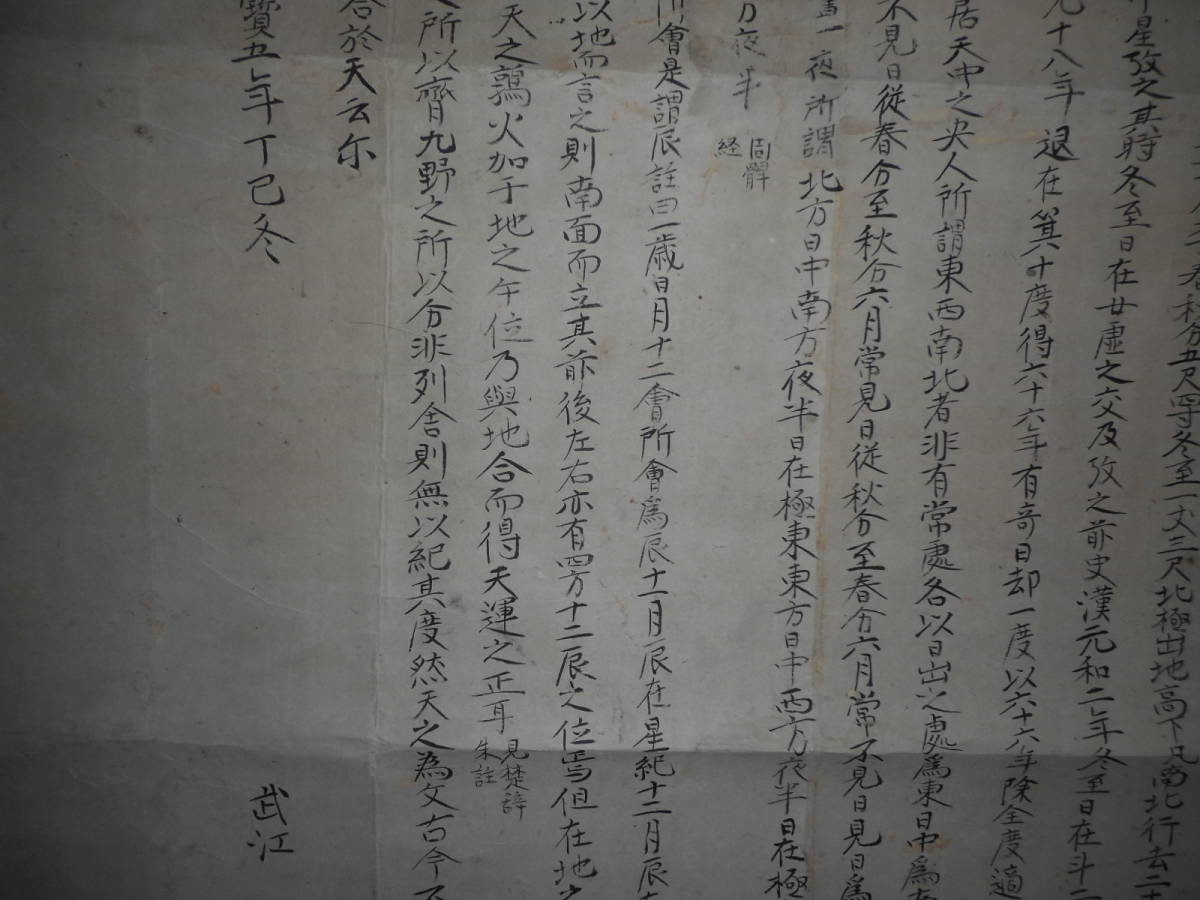 春秋分五尺零冬至一丈三尺北極出地高下凡南北行去二十
星攷之其時冬至日在廿虛之六及攷之前史漢元和二年冬至日在斗二
九十八年退在箕十度得六十六年有奇日却一度以六十六年除全度適
居天中之央人所謂東西南北者非有常處各以日出之處爲東日中爲南
不見日從春分至秋分六月常見日從秋分至春分六月常不見日見日爲
晝一夜所謂北方日中南方夜半日在極東東方日中西方夜半日在極
方夜半
周髀
経
所會是謂辰註曰一歲日月十二會所會爲辰十一月辰在星紀十二月辰
以地而言之則南面而立其前後左右亦有四方十二辰之位焉但在地之
天之鶉火加于地之午位乃與地合而得天運之正耳
見楚辞
朱註
所以齊九野之所以分非列舍則無以紀其度然天之為文古今不
合於天云尓
寶五年丁巳冬
武江